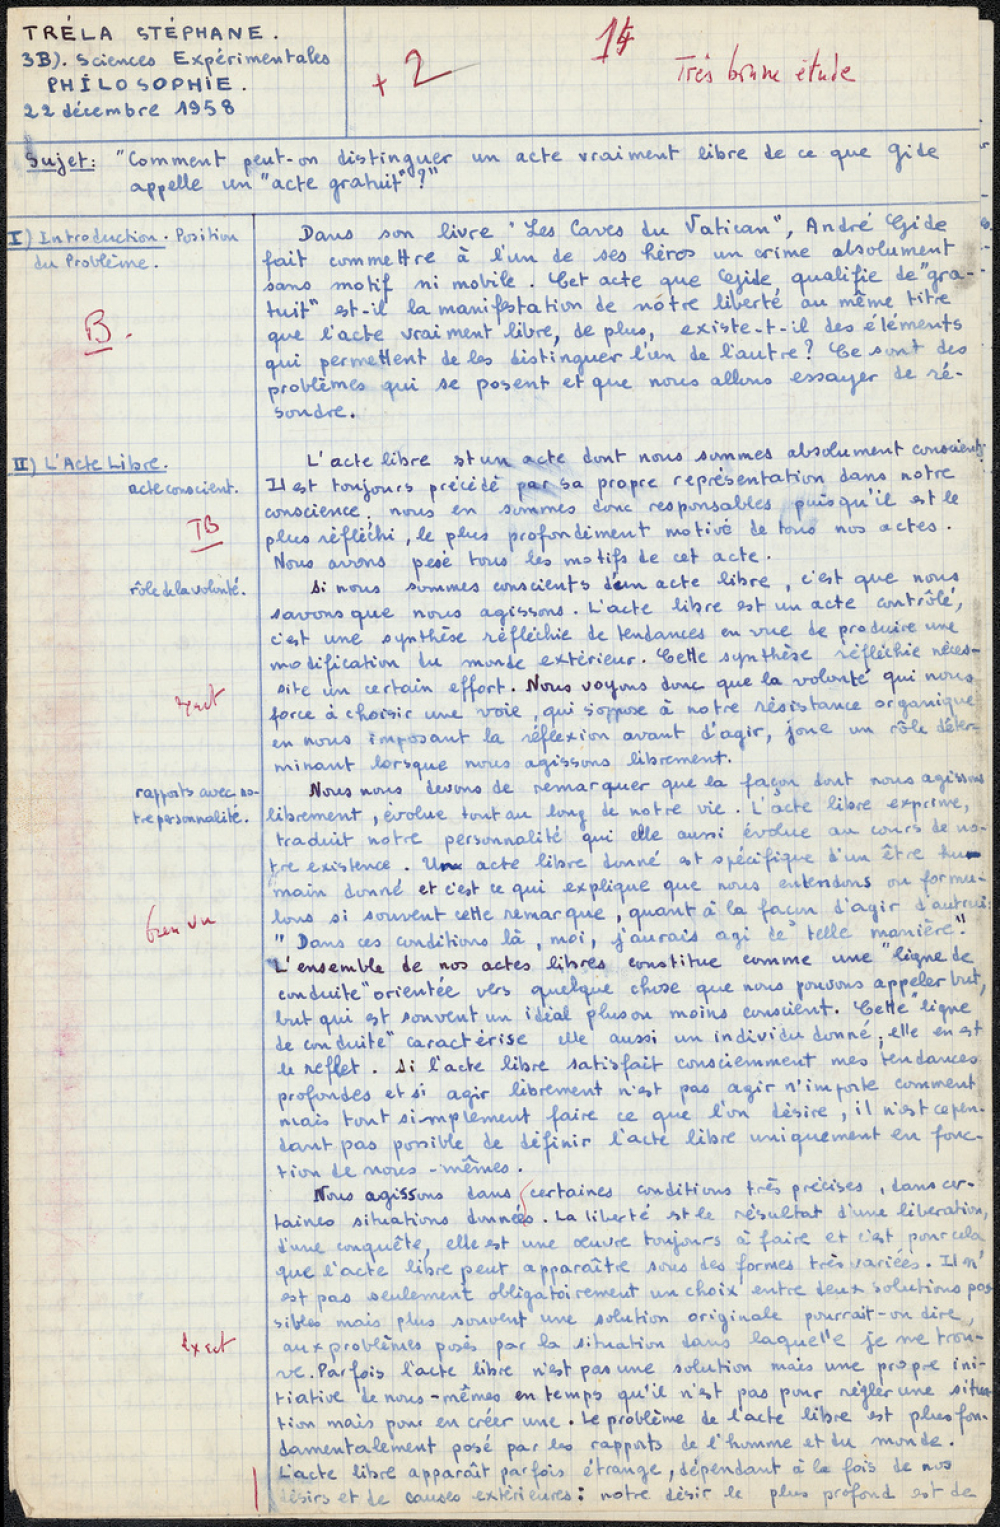 TRÉLA STÉPHANE.
3B). Sciences Expérimentales
PHILOSOPHIE.
22 décembre 1958
+ 2
14
Très bonne étude
Sujet: "Comment peut-on distinguer un acte vraiment libre de ce que Gide
appelle un "acte gratuit"?"
I) Introduction. Position
du Problème.
B.
Dans son livre "Les Caves du Vatican", André Gide
fait commettre à l'un de ses héros un crime absolument
sans motif ni mobile. Cet acte que Gide qualifie de "gra-
tuit" est-il la manifestation de nôtre liberté au même titre
que l'acte vraiment libre, de plus, existe-t-il des éléments
qui permettent de les distinguer l'un de l'autre? Ce sont des
problèmes qui se posent et que nous allons essayer de ré-
soudre.
II) L'Acte Libre.
acte conscient.
TB
L'acte libre est un acte dont nous sommes absolument conscients.
Il est toujours précédé par sa propre représentation dans notre
conscience, nous en sommes donc responsables puisqu'il est le
plus réfléchi, le plus profondément motivé de tous nos actes.
Nous avons pesé tous les motifs de cet acte.
rôle de la volonté.
Si nous sommes conscients d'un acte libre, c'est que nous
savons que nous agissons. L'acte libre est un acte contrôlé,
c'est une synthèse réfléchie de tendances en vue de produire une
modification du monde extérieur. Cette synthèse réfléchie néces-
site un certain effort. Nous voyons donc que la volonté qui nous
exact
force à choisir une voie, qui s'oppose à notre résistance organique
en nous imposant la réflexion avant d'agir, joue un rôle déter-
minant lorsque nous agissons librement.
rapports avec no-
tre personnalité.
Nous nous devons de remarquer que la façon dont nous agissons
librement, évolue tout au long de notre vie. L'acte libre exprime,
traduit notre personnalité qui elle aussi évolue au cours de no-
tre existence. Un acte libre donné est spécifique d'un être hu-
main donné et c'est ce qui explique que nous entendons ou formu-
lons si souvent cette remarque, quant à la façon d'agir d'autrui:
bien vu
"Dans ces conditions là, moi, j'aurais agi de telle manière".
L'ensemble de nos actes libres constitue comme une "ligne de
conduite" orientée vers quelque chose que nous pouvons appeler but,
but qui est souvent un idéal plus ou moins conscient. Cette "ligne
de conduite" caractérise elle aussi un individu donné, elle en est
le reflet. Si l'acte libre satisfait consciemment mes tendances
profondes et si agir librement n'est pas agir n'importe comment
mais tout simplement faire ce que l'on désire, il n'est cepen-
dant pas possible de définir l'acte libre uniquement en fonc-
tion de nous-mêmes.
Nous agissons dans certaines conditions très précises, dans cer-
taines situations données. La liberté est le résultat d'une libération,
d'une conquête, elle est une œuvre toujours à faire et c'est pour cela
que l'acte libre peut apparaître sous des formes très variées. Il n'
est pas seulement obligatoirement un choix entre deux solutions pos-
sibles mais plus souvent une solution originale pourrait-on dire,
exact
aux problèmes posés par la situation dans laquelle je me trou-
ve. Parfois l'acte libre n'est pas une solution mais une propre ini-
tiative de nous-mêmes en temps qu'il n'est pas pour régler une situa-
tion mais pour en créer une. Le problème de l'acte libre est plus fon-
damentalement posé par les rapports de l'homme et du monde.
L'acte libre apparaît parfois étrange, dépendant à la fois de nos
désirs et de causes extérieures: notre désir le plus profond est de